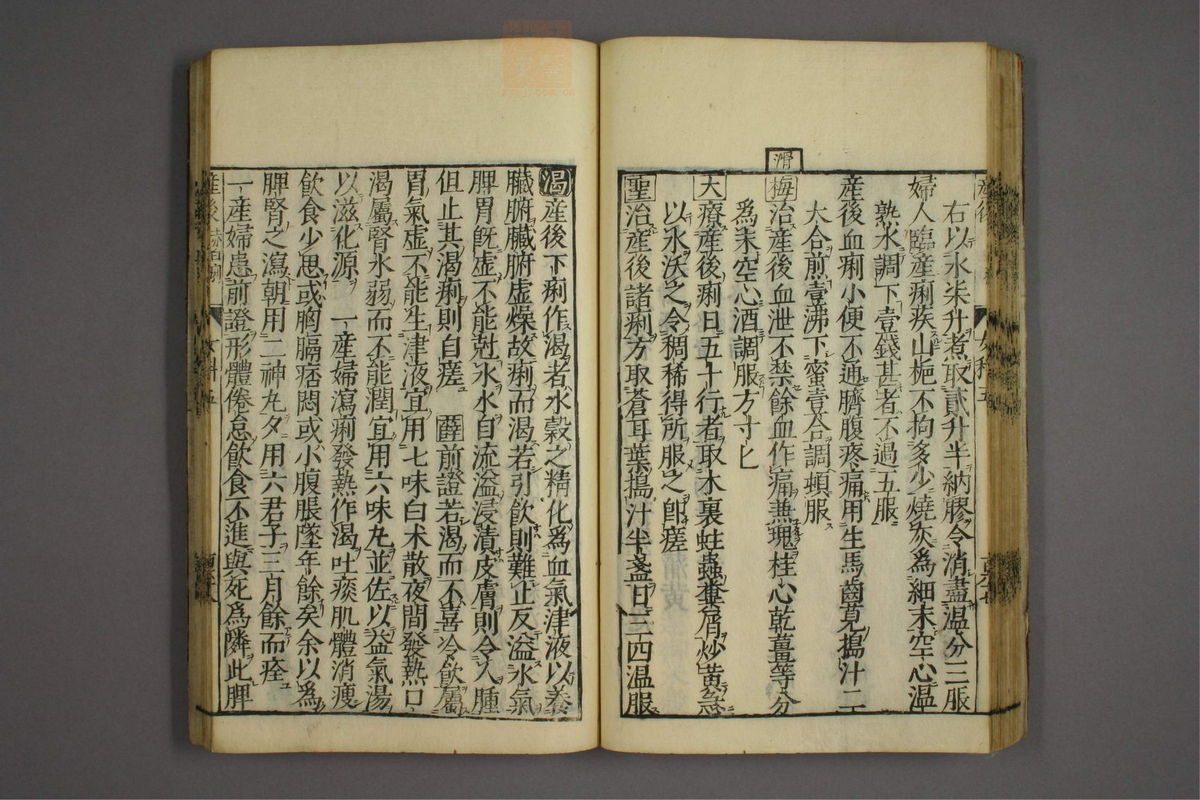 右以水柒升煮取貳升半納膠令消盡温分三服
婦人臨産痢疾山梔不拘多少燒灰爲細末空心温
熟水調下壹錢甚者不過五服
産後血痢小便不通臍腹疼痛用生馬齒莧搗汁二
大合煎壹沸下蜜壹合調頓服
滑
梅治産後血泄不禁餘血作痛兼塊桂心乾薑等分
爲末空心酒調服方寸匕
大療産後痢日五十行者取木裏蛀蟲糞屑炒黄急
以水沃之令稠稀得所服之卽瘥
聖治産後諸痢方取蒼耳葉搗汁半盞日三四温服
渴産後下痢作渴者水穀之精化爲血氣津液以養
臟腑臟腑虚燥故痢而渴若引飲則難止反溢水氣
脾胃旣虚不能尅水水自流溢浸漬皮膚則令人腫
但止其渴痢則自瘥 薛前證若渴而不喜冷飲屬
胃氣虚不能生津液宜用七味白术散夜間發熱口
渴屬腎水弱而不能潤宜用六味丸並佐以益氣湯
以滋化源 一産婦瀉痢發熱作渴吐痰肌體消瘦
飲食少思或胸膈痞悶或小腹脹墜年餘矣余以爲
脾腎之瀉朝用二神丸夕用六君子三月餘而痊
一産婦患前證形體倦怠飲食不進與死爲隣此脾
産後
女科五